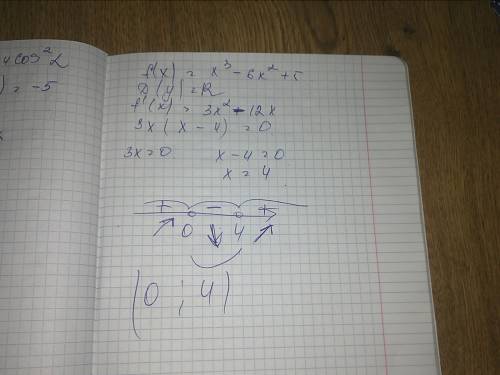 4cos²α
) = -5
f(x) = x³ - 6x² + 5
D(y) = R
f'(x) = 3x² - 12x
3x(x - 4) = 0
3x = 0 x - 4 = 0
x = 4
+ - +
↗ 0 ↓ 4 ↗
(0 ; 4)